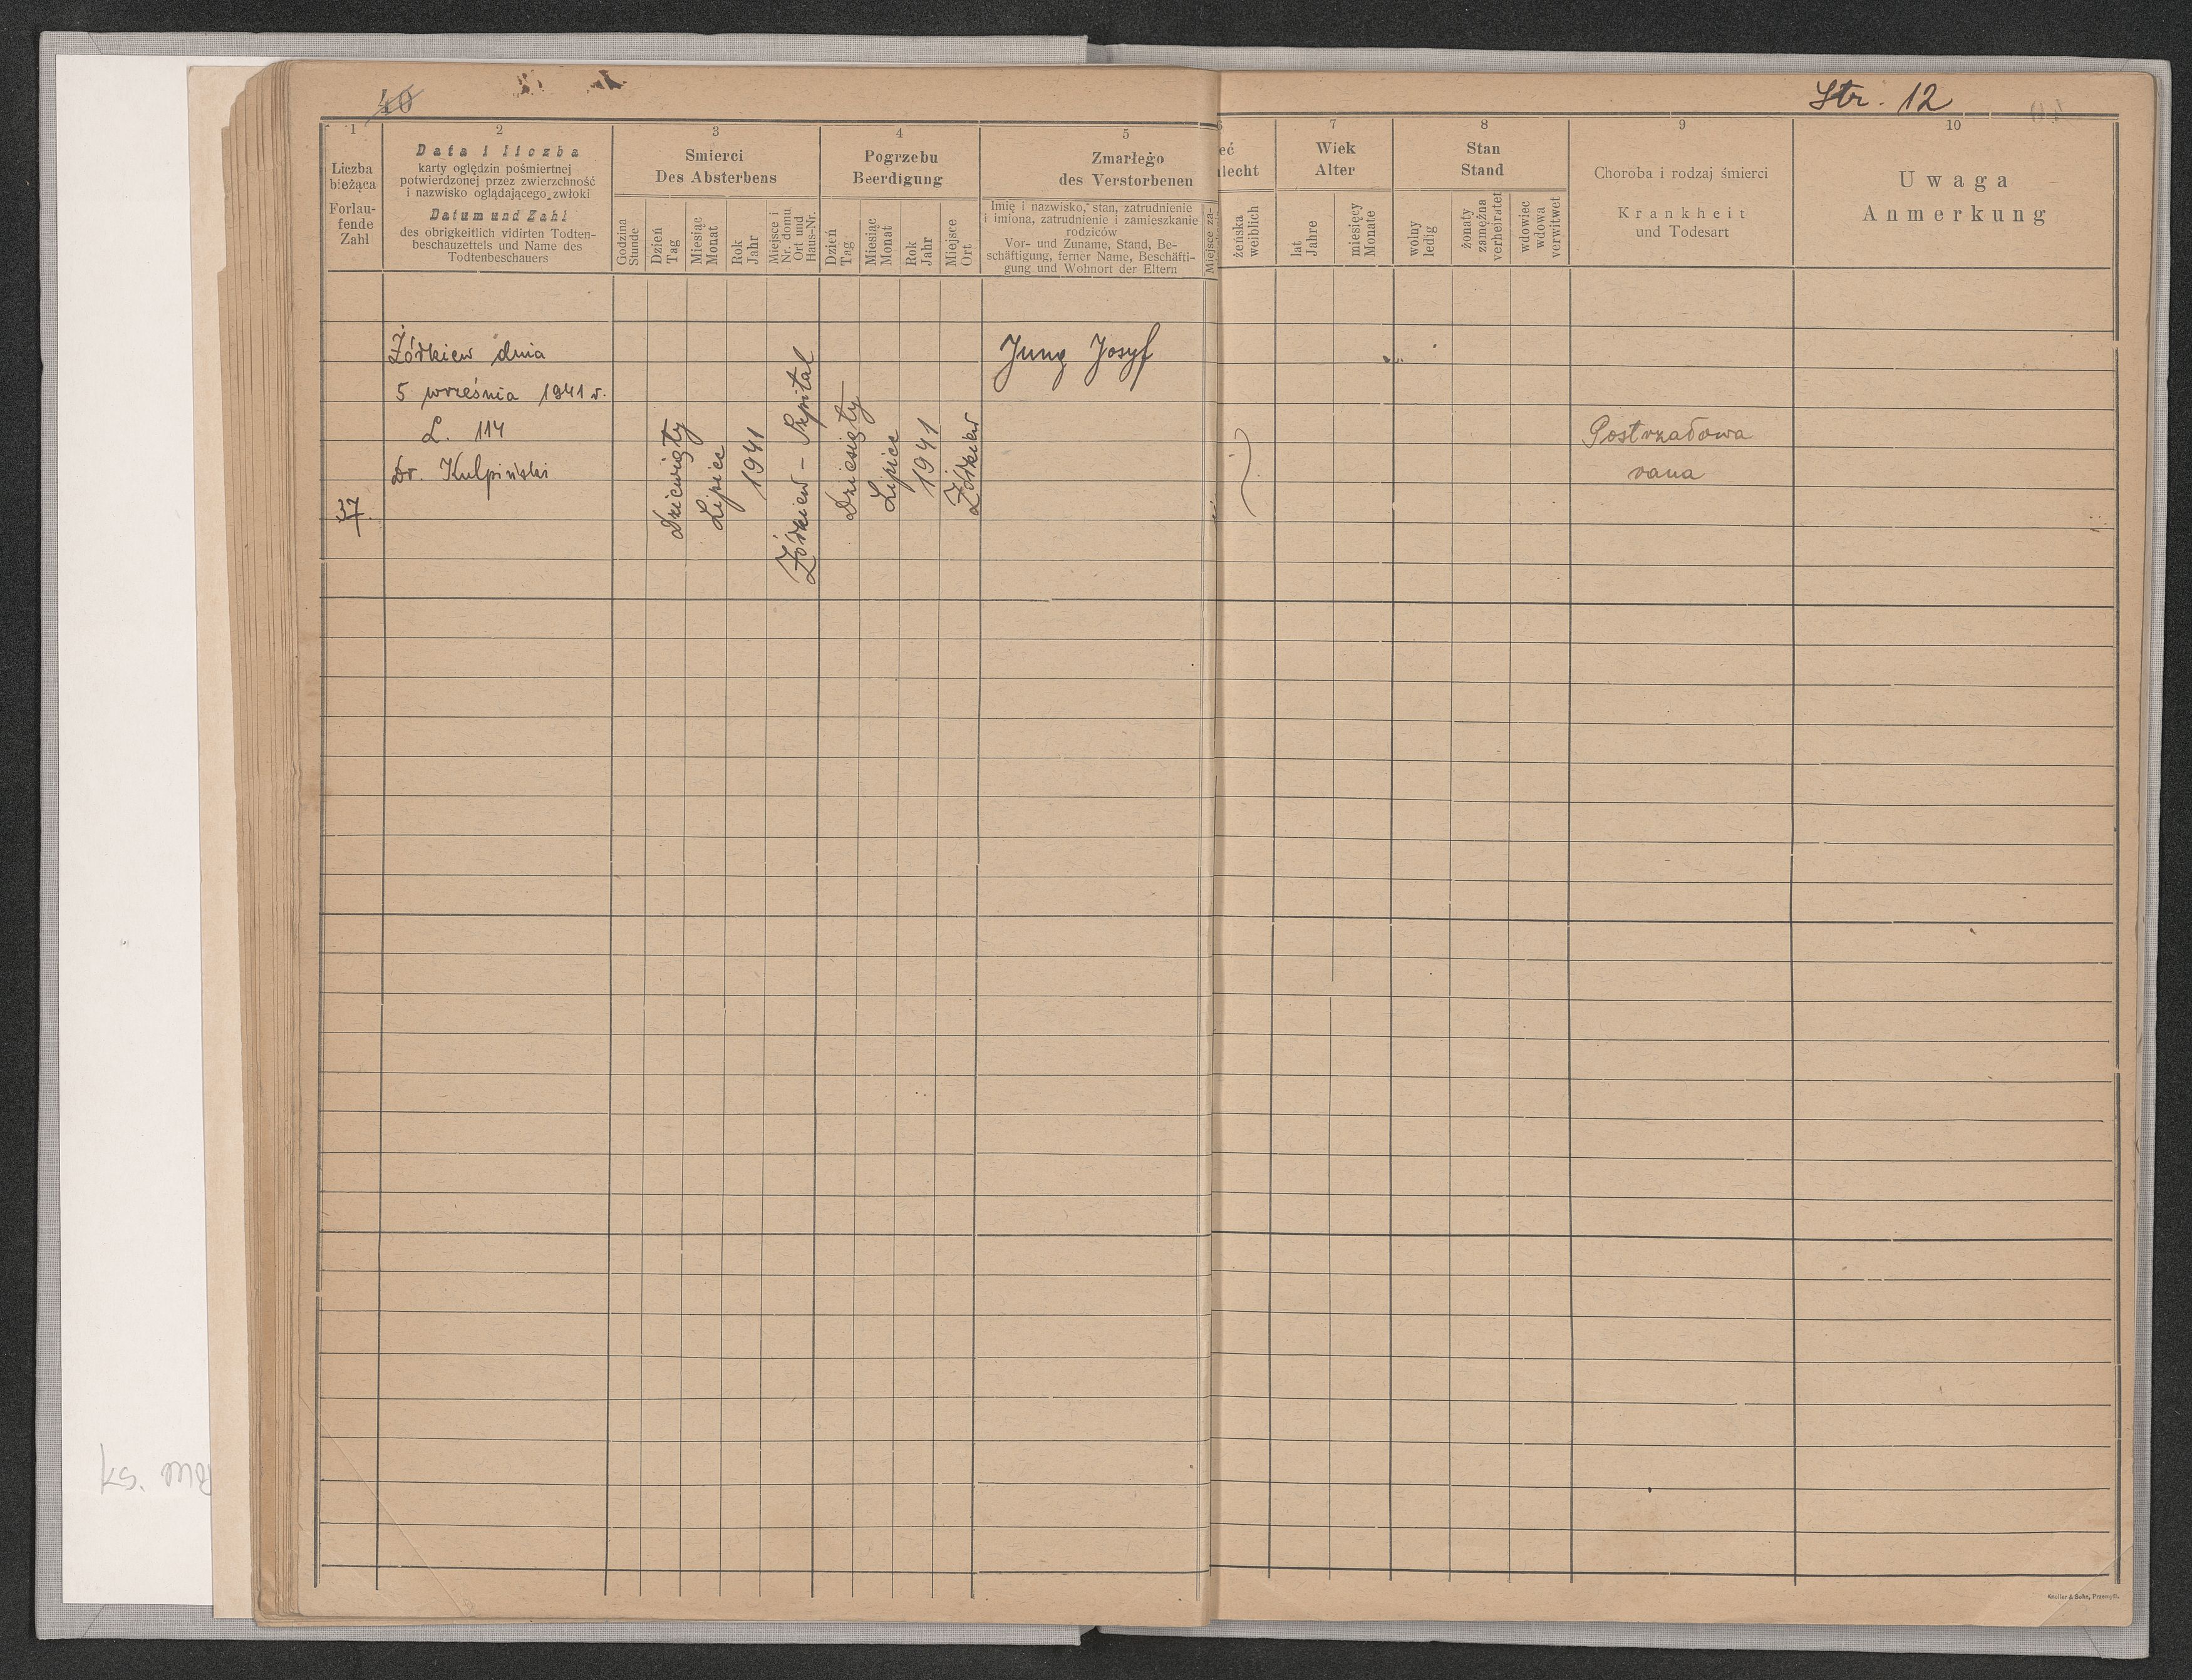 40
Str. 12
1
2
3
4
5
6
7
8
9
10
Liczba
bieżąca
Forlau-
fende
Zahl
Data i liczba
karty oględzin pośmiertnej
potwierdzonej przez zwierzchność
i nazwisko oglądającego zwłoki
Datum und Zahl
des obrigkeitlich vidirten Todten-
beschauzettels und Name des
Todtenbeschauers
Smierci
Des Absterbens
Godzina
Stunde
Dzień
Tag
Miesiąc
Monat
Rok
Jahr
Miejsce i
Nr. domu
Ort und
Haus-Nr.
Pogrzebu
Beerdigung
Dzień
Tag
Miesiąc
Monat
Rok
Jahr
Miejsce
Ort
Zmarłego
des Verstorbenen
Imię i nazwisko, stan, zatrudnienie
i imiona, zatrudnienie i zamieszkanie
rodziców
Vor- und Zuname, Stand, Be-
schäftigung, ferner Name, Beschäfti-
gung und Wohnort der Eltern
Miejsce za-
eć
lecht
żeńska
weiblich
Wiek
Alter
lat
Jahre
miesięcy
Monate
Stan
Stand
wolny
ledig
żonaty
zamężna
verheiratet
wdowiec
wdowa
verwitwet
Choroba i rodzaj śmierci
Krankheit
und Todesart
Uwaga
Anmerkung
37.
Żółkiew dnia
5 września 1941 r.
L. 114
Dr. Kulpiński
Dziewiąty
Lipiec
1941
Żółkiew - Szpital
Dziesiąty
Lipiec
1941
Żółkiew
Jung Josyf
Postrzałowa
rana
Knoller & Sohn, Przemyśl.